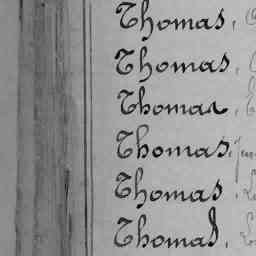 Thomas,
Thomas,
Thomas,
Thomas,
Thomas,
Thomas,